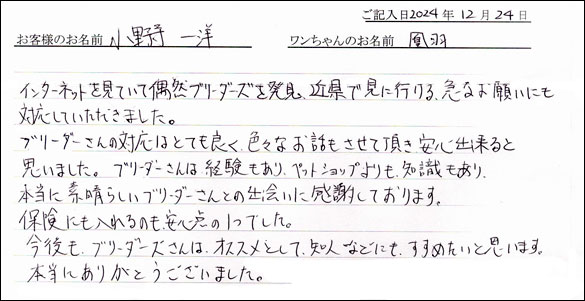 ご記入日2024年12月24日
お客様のお名前 小野寺 一洋 ワンちゃんのお名前 凰羽
インターネットを見ていて偶然ブリーダーズを発見、近県で見に行ける、急なお願いにも
対応していただきました。
ブリーダーさんの対応はとても良く、色々なお話もさせて頂き安心出来ると
思いました。ブリーダーさんは経験もあり、ペットショップよりも、知識もあり、
本当に素晴らしいブリーダーさんとの出会いに感謝しております。
保険にも入れるのも安心点の1つでした。
今後も、ブリーダーズさんは、オススメとして、知人などにも、すすめたいと思います。
本当にありがとうございました。